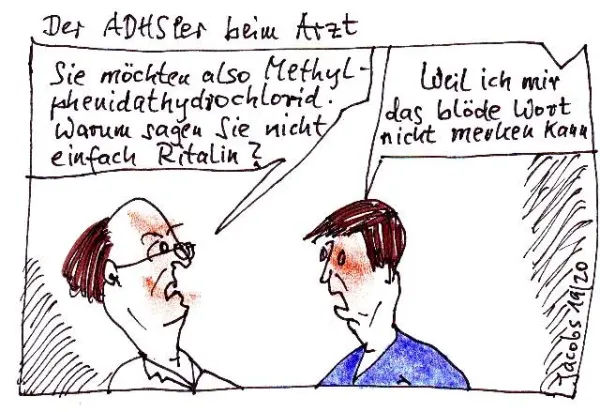 Der ADHSler beim Arzt
Sie möchten also Methyl-
phenidathydrochlorid.
Warum sagen Sie nicht
einfach Ritalin?
Weil ich mir
das blöde Wort
nicht merken kann
Jacobs 19/20